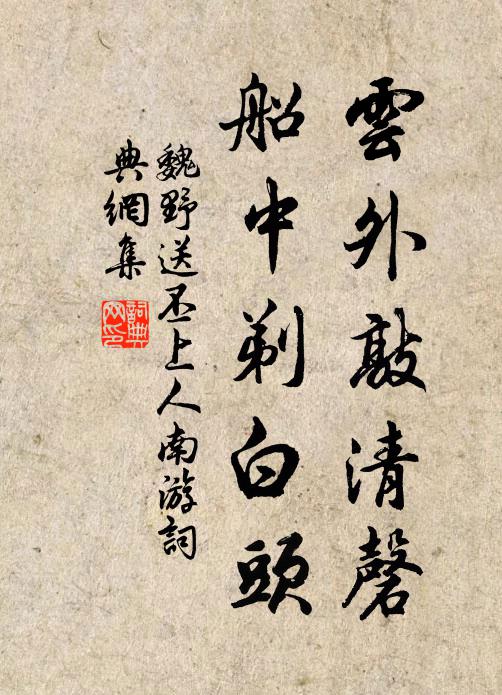 雲外敲清磬
船中剃白頭
魏野送丕上人南游詞
典網集
詞典
网印